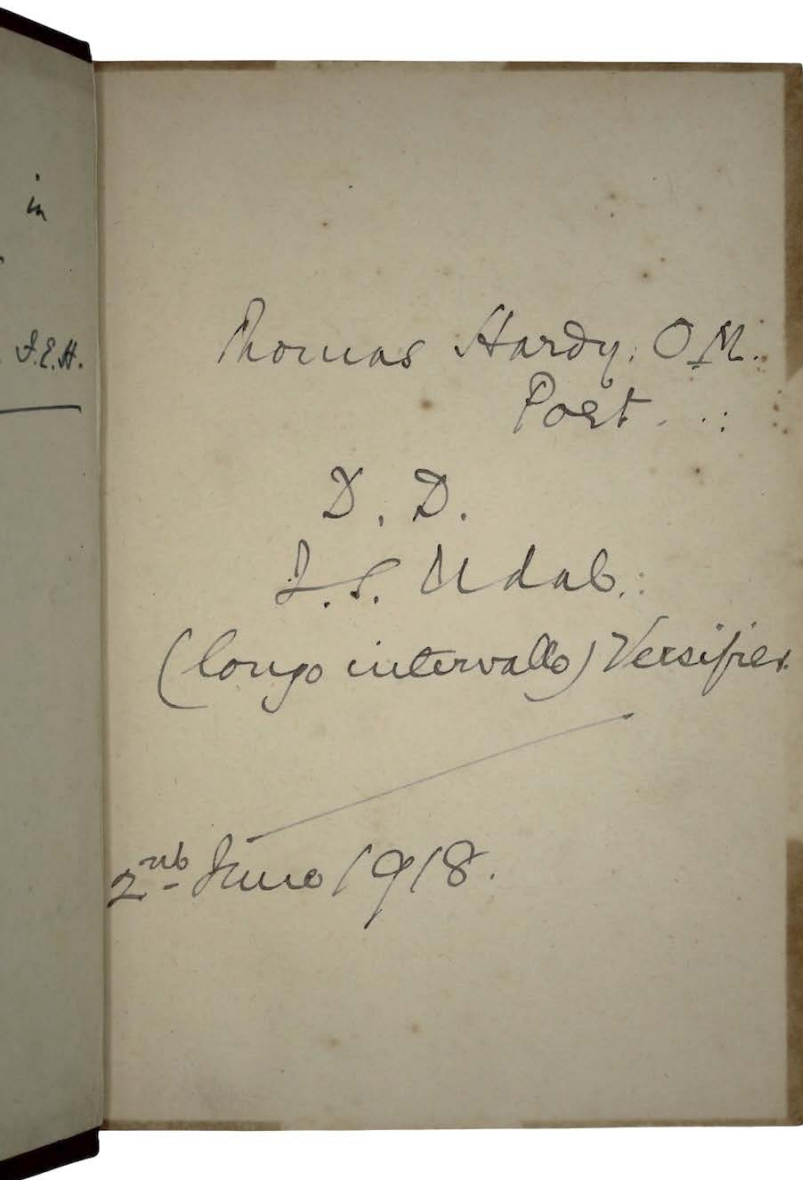 in
F.E.H.
Thomas Hardy, O.M.
Poet.
D. D.
J.S. Udal.
(longo intervallo) Versifier.
2nd June 1918.